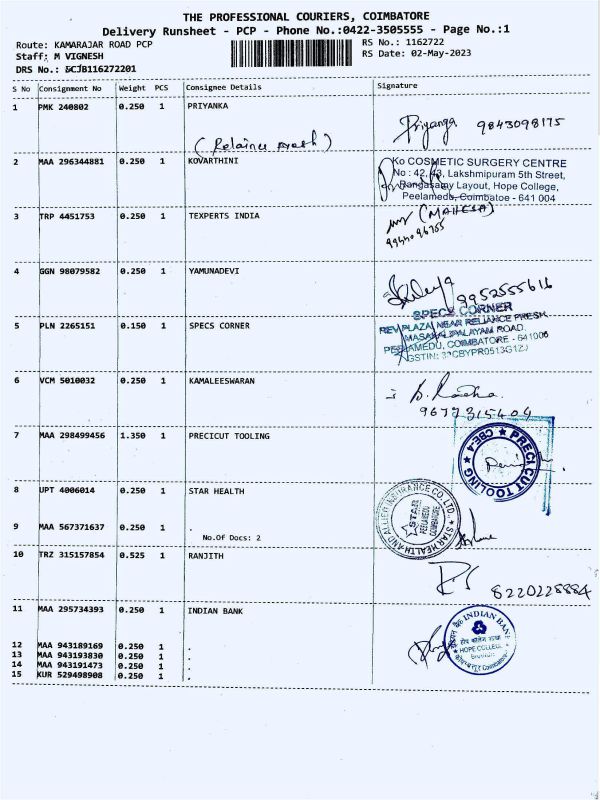 THE PROFESSIONAL COURIERS, COIMBATORE
Delivery Runsheet - PCP - Phone No.:0422-3505555 - Page No.:1
Route: KAMARAJAR ROAD PCP RS No.: 1162722
Staff: M VIGNESH RS Date: 02-May-2023
DRS No.: &CJB116272201
S No Consignment No Weight PCS Consignee Details Signature
1 PMK 240802 0.250 1 PRIYANKA
Priyanga 9843098175
2 MAA 296344881 0.250 1 KOVARTHINI
Ko COSMETIC SURGERY CENTRE
No : 42, 43, Lakshmipuram 5th Street,
Rangasamy Layout, Hope College,
Peelamedu, Coimbatoe - 641 004
3 TRP 4451753 0.250 1 TEXPERTS INDIA
(MAHESA)
4 GGN 98079582 0.250 1 YAMUNADEVI
9952555616
5 PLN 2265151 0.150 1 SPECS CORNER
SPECS CORNER
REV PLAZA, NEAR RELIANCE FRESH
MASAKALIPALAYAM ROAD,
PEELAMEDU, COIMBATORE - 641006
6 VCM 5010032 0.250 1 KAMALEESWARAN
9677315404
7 MAA 298499456 1.350 1 PRECICUT TOOLING
PRECICUT TOOLING
CBE-4
8 UPT 4006014 0.250 1 STAR HEALTH
STAR HEALTH AND ALLIED INSURANCE CO. LTD.
STAR
PEELAMEDU
COIMBATORE
9 MAA 567371637 0.250 1 .
No.Of Docs: 2
10 TRZ 315157854 0.525 1 RANJITH
8220228884
11 MAA 295734393 0.250 1 INDIAN BANK
INDIAN BANK
HOPE COLLEGE
12 MAA 943189169 0.250 1 .
13 MAA 943193830 0.250 1 .
14 MAA 943191473 0.250 1 .
15 KUR 529498908 0.250 1 .